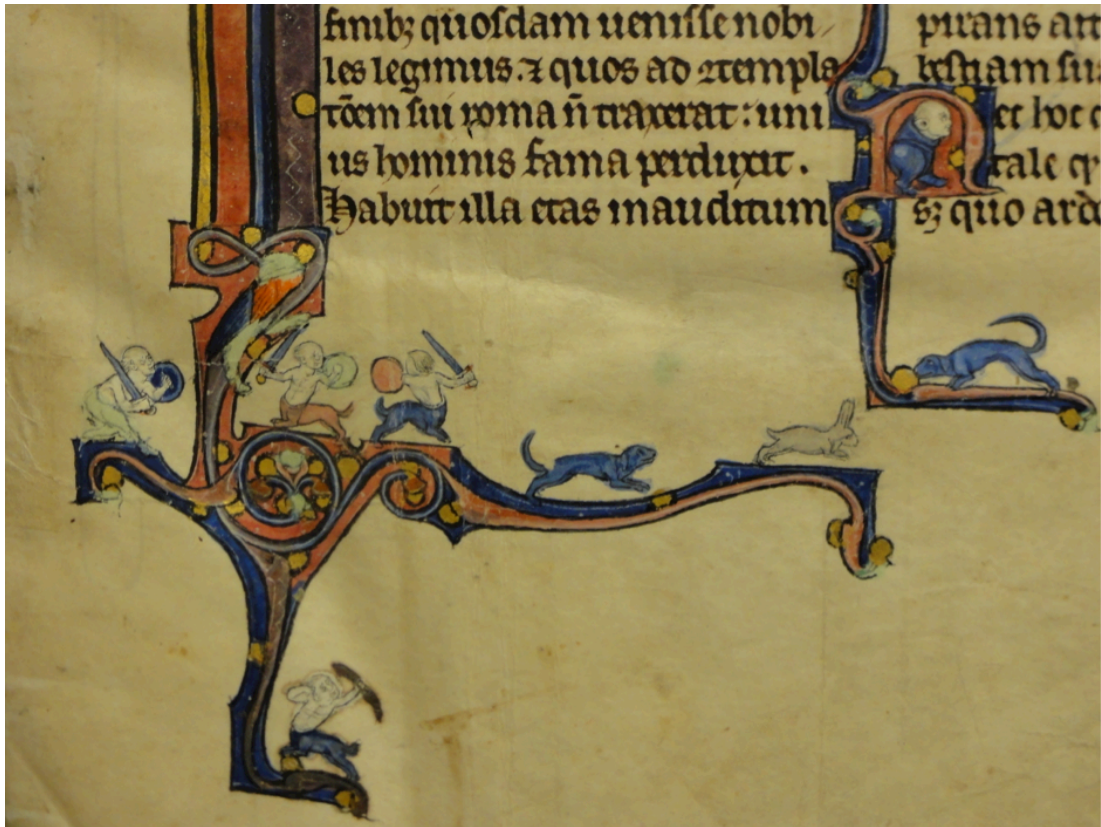 finibꝫ quosdam uenisse nobi-
les legimus. ⁊ quos ad ↄtempla
tōem sui roma n̄ traxerat: uni
us hominis fama perduxit.
Habuit illa etas inauditum
pirans
bestiam
et hoc
tale
sꝫ quo